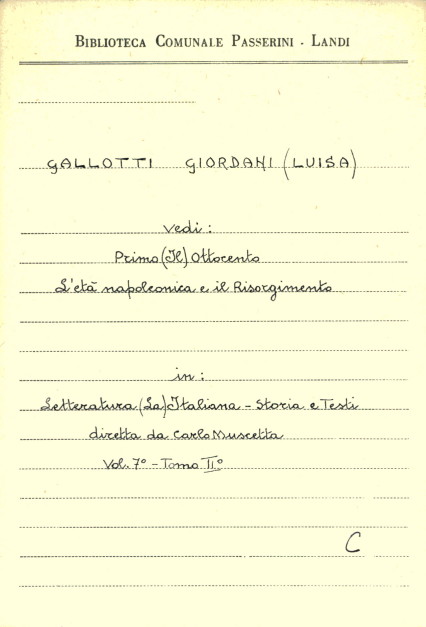 BIBLIOTECA COMUNALE PASSERINI - LANDI
GALLOTTI GIORDANI (LUISA)
vedi:
Primo (Il) Ottocento
L'età napoleonica e il Risorgimento
in:
Letteratura (La) Italiana - Storia e Testi
diretta da Carlo Muscetta
Vol. 7° - Tomo II°
C